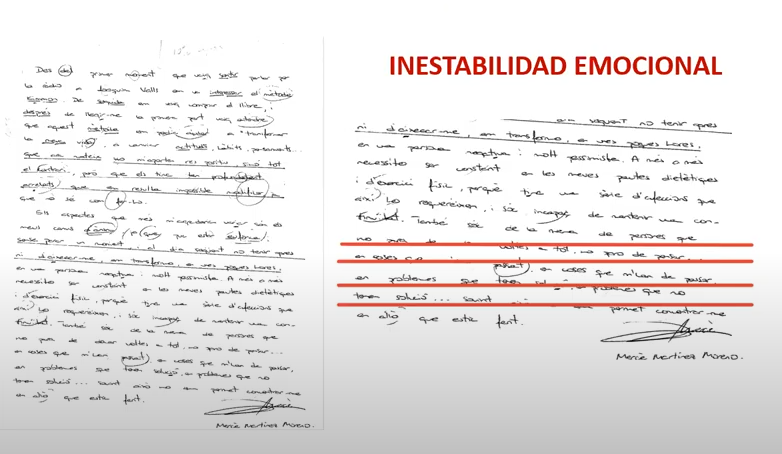 Des del primer moment que vaig sentir parlar per
la ràdio a Joaquim Valls em va interessar el mètode
Kaizen. De seguida em vaig comprar el llibre, i
després de llegir-me la primera part vaig entendre
que aquest mètode em podia ajudar a transformar
la meva vida, a canviar actituds, hàbits, pensaments...
que no m'aporta res positiu, sinó tot
el contrari, però que els tinc tan
arrelats que em resulta impossible modificar o
que no sé com fer-ho.
Els aspectes que més m'agradaria
meus canvis
sense parar un moment, el dia següent no tenir ganes
ni d'aixecar-me, em transformo, en poques hores,
en una persona negativa i molt pessimista. A més a més
necessito ser constant en les meves pautes dietètiques
i d'exercici físic, perquè tinc una sèrie d'afeccions que
així ho requereixen, i sóc incapaç de mantenir una con-
tinuïtat. També sóc de la mena de persones que
no para de donar voltes a tot, no paro de pensar...
en coses que m'han passat, en coses que m'han de passar,
en problemes que tenen solució, en problemes que no
tenen solució... sovint això no em permet concentrar-me
en allò que estic fent.
Mercè Martínez Moreno.
INESTABILIDAD EMOCIONAL
següent no tenir ganes
ni d'aixecar-me, em transformo, en poques hores,
en una persona negativa i molt pessimista. A més a més
necessito ser constant en les meves pautes dietètiques
i d'exercici físic, perquè tinc una sèrie d'afeccions que
així ho requereixen, i sóc incapaç de mantenir una con-
tinuïtat. També sóc de la mena de persones que
no para de voltes a tot, no paro de pensar...
en coses passat, en coses que m'han de passar,
en problemes que tenen problemes que no
tenen solució... sovint em permet concentrar-me
en allò que estic fent.
Mercè Martínez Moreno.